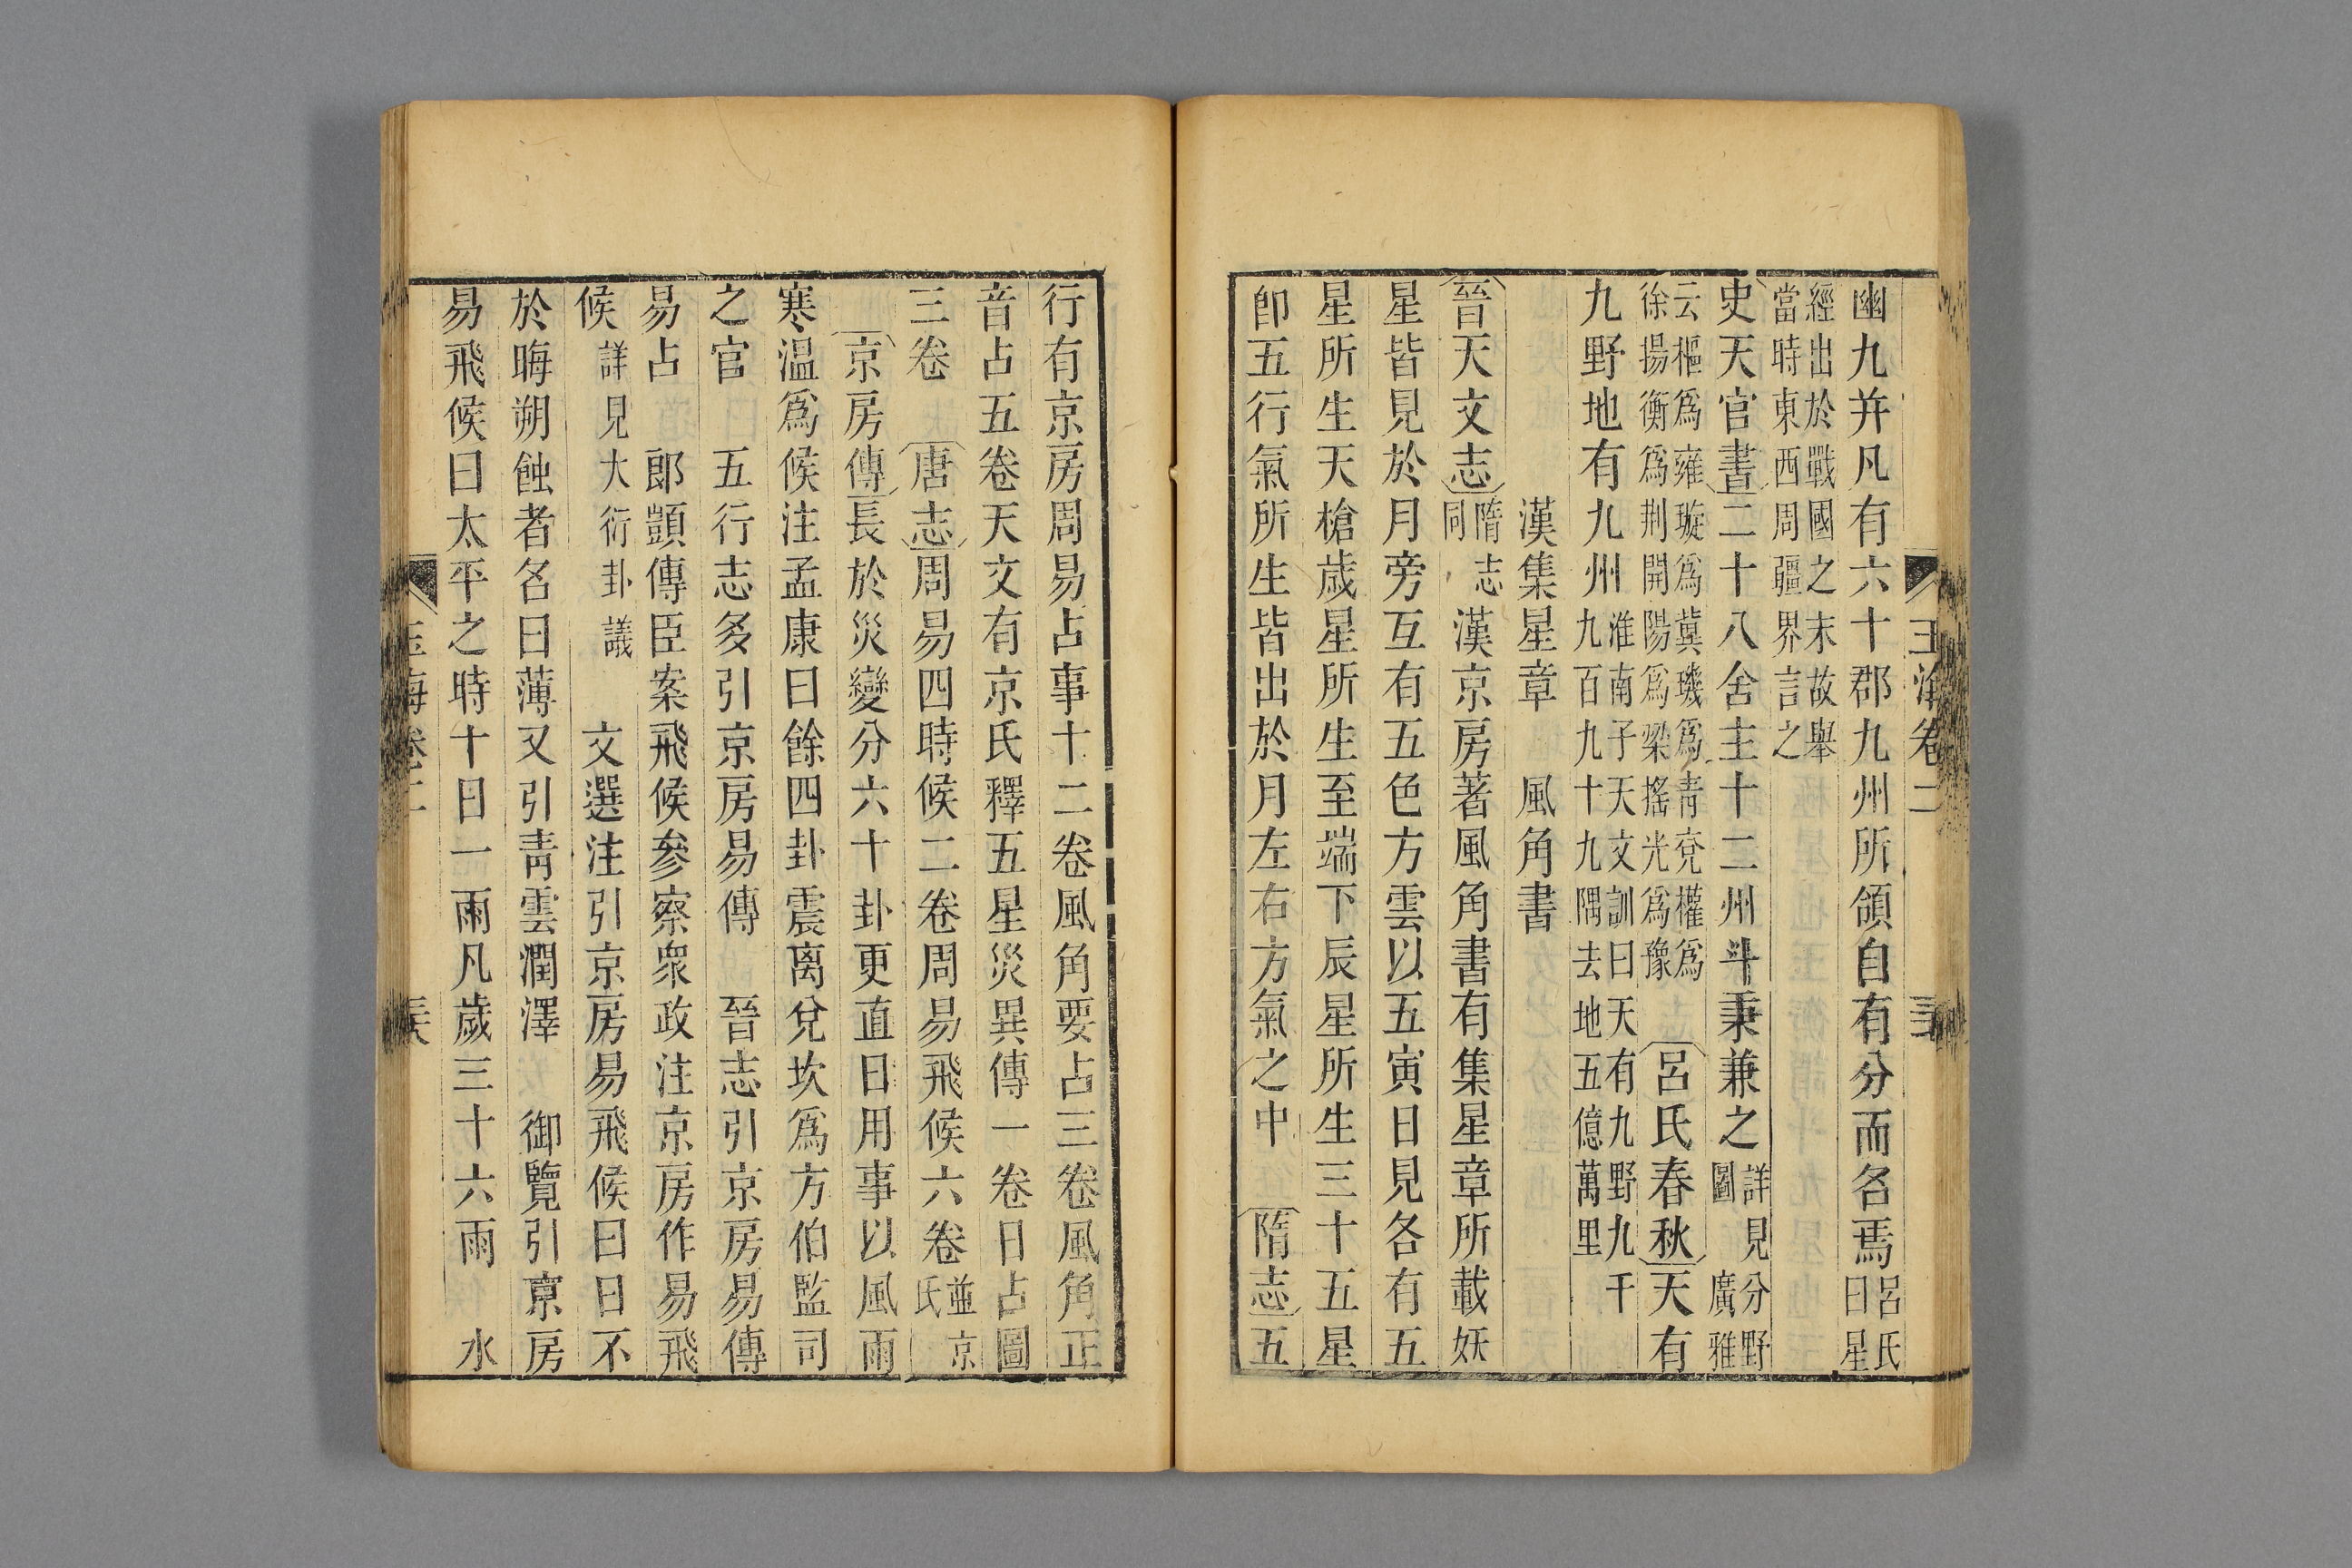 玉海卷二
幽九并凡有六十郡九州所領自有分而名焉呂氏曰星
經出於戰國之末故舉
當時東西周疆界言之
史天官書二十八舍主十二州斗秉兼之詳見分野圖廣雅
云樞爲雍璇爲冀璣爲青兗權爲
徐揚衡爲荆開陽爲梁搖光爲豫
呂氏春秋天有
九野地有九州淮南子天文訓曰天有九野九千九百九十九隅去地五億萬里
漢集星章　風角書
晉天文志隋志同　漢京房著風角書有集星章所載妖
星皆見於月旁互有五色方雲以五寅日見各有五
星所生天槍歲星所生至端下辰星所生三十五星
卽五行氣所生皆出於月左右方氣之中　隋志五
行有京房周易占事十二卷風角要占三卷風角正
音占五卷天文有京氏釋五星災異傳一卷日占圖
三卷　唐志周易四時候二卷周易飛候六卷並京氏
京房傳長於災變分六十卦更直日用事以風雨
寒溫爲候注孟康曰餘四卦震离兌坎爲方伯監司
之官　五行志多引京房易傳　晉志引京房易傳
易占　郎顗傳臣案飛候參察衆政注京房作易飛
候詳見大衍卦議　文選注引京房易飛候曰日不
於晦朔蝕者名曰薄又引靑雲潤澤　御覽引京房
易飛候曰太平之時十日一雨凡歲三十六雨　水
玉海卷二